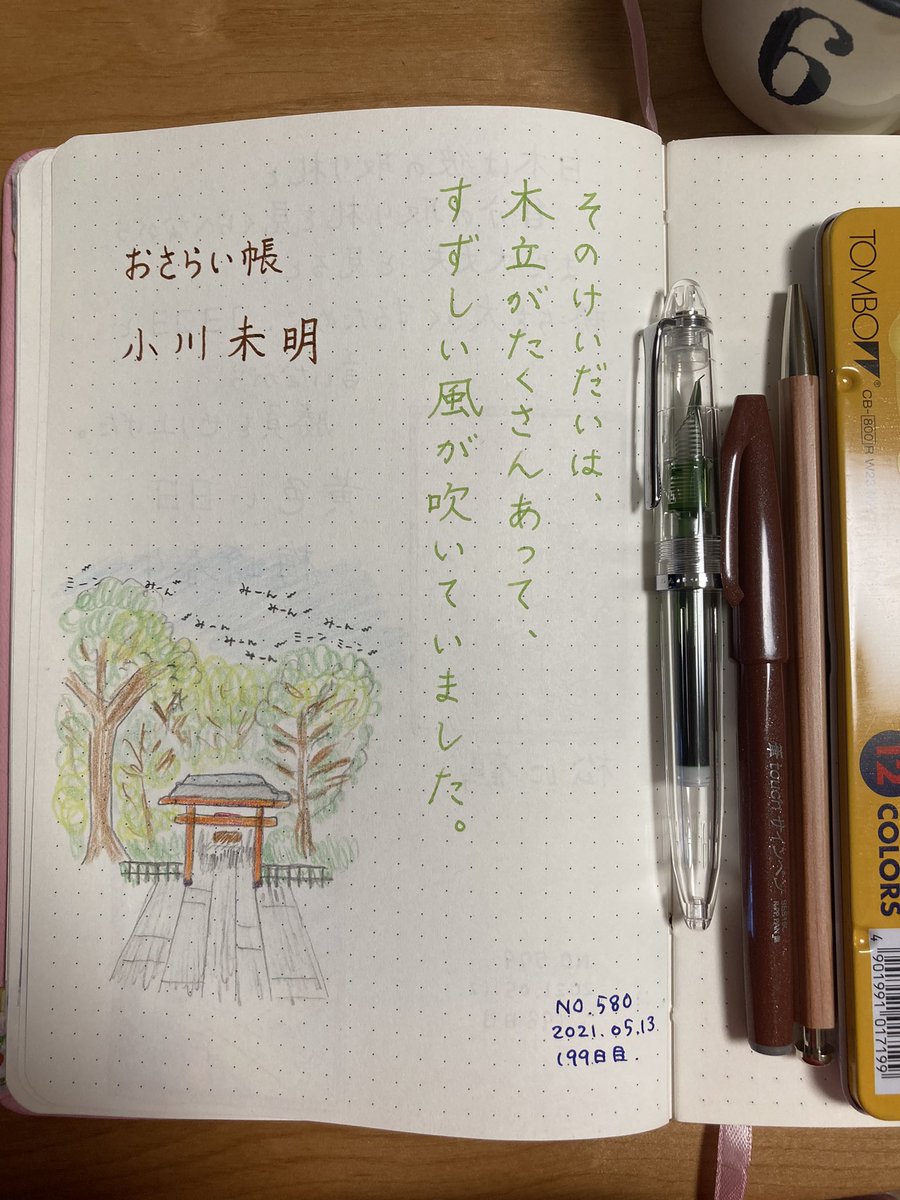 そのけいだいは、
木立がたくさんあって、
すずしい風が吹いていました。
おさらい帳
小川未明
ミーン
みーん
みーん
みーん
みーん
みーん
みーん
ミーン
ミーン
NO.580
2021.05.13
199日目.
6
筆touch サインペン
TOMBOW®
CB-800R
12
COLORS
4901991017199